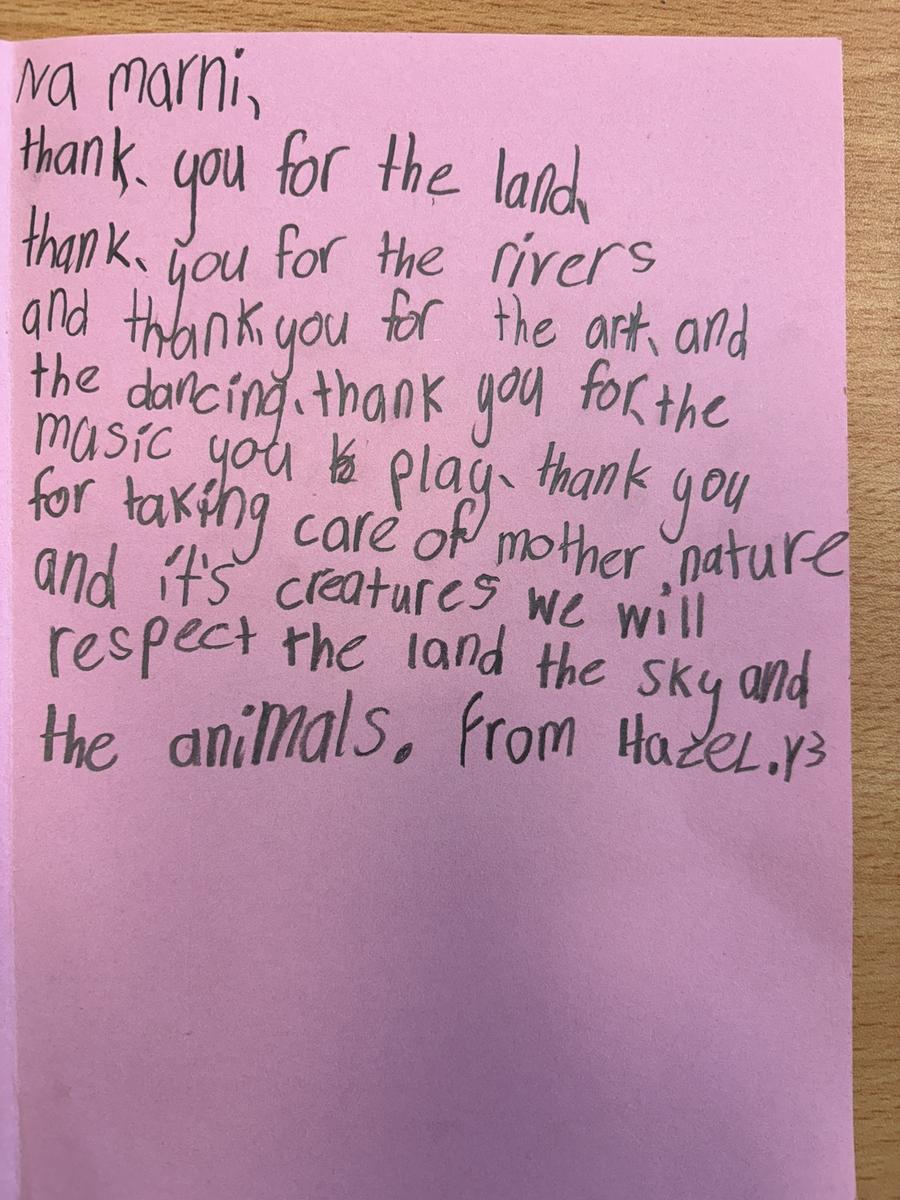 Na marni,
thank, you for the land,
thank, you for the rivers
and thank, you for the art, and
the dancing, thank you for, the
music you play, thank you
for taking care of mother nature
and it's creatures we will
respect the land the sky and
the animals. From Hazel.Y3